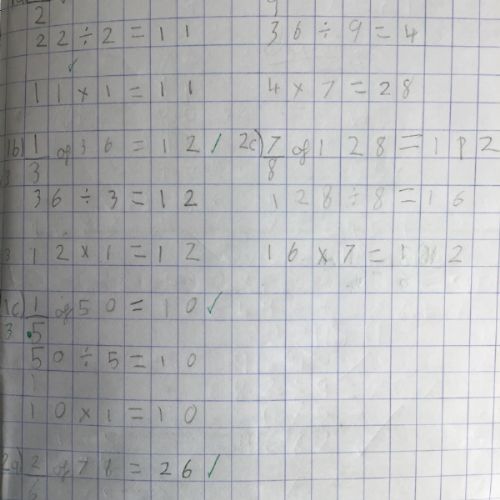 2
22÷2=11
11×1=11
1b) 1/3 of 36=12 ✓
36÷3=12
12×1=12
1c) 1/5 of 50=10 ✓
50÷5=10
10×1=10
2a) 2/6 of 78=26 ✓
36÷9=4
4×7=28
2c) 7/8 of 128=112
128÷8=16
16×7=112